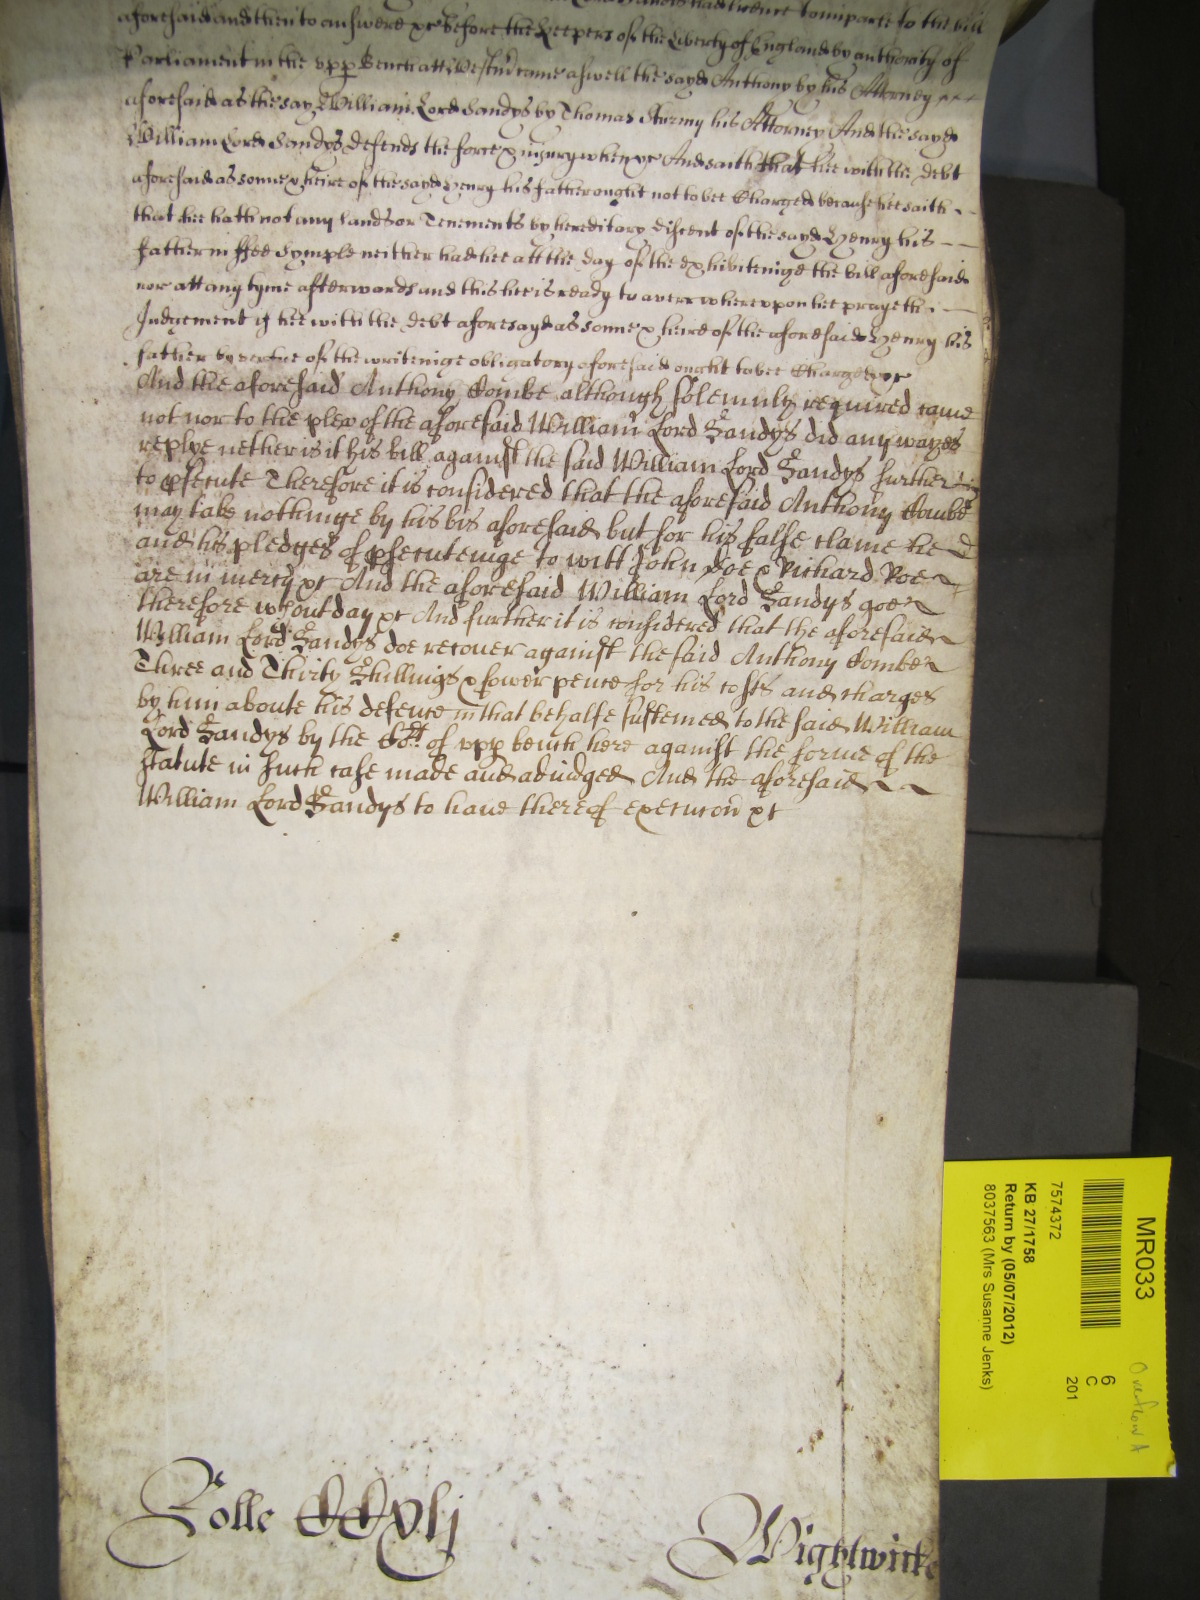 aforesaid and then to answere &c Before the Keepers of the Liberty of England by authority of
Parliament in the upp Bench att Westm came aswell the sayd Anthony by his Attorney
aforesaid as the sayd William Lord Sandys by Thomas Sturmy his Attorney And the sayd
William Lord Sandys defends the force & injury when &c And saith that hee with the debt
aforesaid as sonne & heire of the sayd Henry his father ought not to bee Charged because hee saith
that hee hath not any lands or Tenements by hereditary discent of the sayd Henry his
father in ffee Symple neither had hee att the day of the exhibiteinge the bill aforesaid
nor att any tyme afterwards and this hee is ready to averr whereupon hee prayeth
Judgement if hee with the debt aforesayd as sonne & heire of the aforesaid Henry his
father by vertue of the writeinge obligatory aforesaid ought to bee Charged &c
And the aforesaid Anthony Combe although solemnly required came
not nor to the plea of the aforesaid William Lord Sandys did any wayes
replye nether is it his bill against the said William Lord Sandys further
to psecute Therefore it is considered that the aforesaid Anthony Combe
may take nothinge by his bis aforesaid but for his false clame he
and his pledges of psecuteinge to witt John Doe & Richard Roe
are in mercy &c And the aforesaid William Lord Sandys goe
therefore wthout day &c And further it is considered that the aforesaid
William Lord Sandys doe recover against the said Anthony Combe
Three and Thirty Shillings & fower pence for his costs and charges
by him aboute his defence in that behalfe susteined to the said William
Lord Sandys by the Cort of upp bench here against the forme of the
statute in such case made and adiudged And the aforesaid
William Lord Sandys to haue thereof execucon &c
Rolle CCxlj
Wightwicke
MR033
6
C
201
7574372
KB 27/1758
Return by (05/07/2012)
8037563 (Mrs Susanne Jenks)
Overflow A